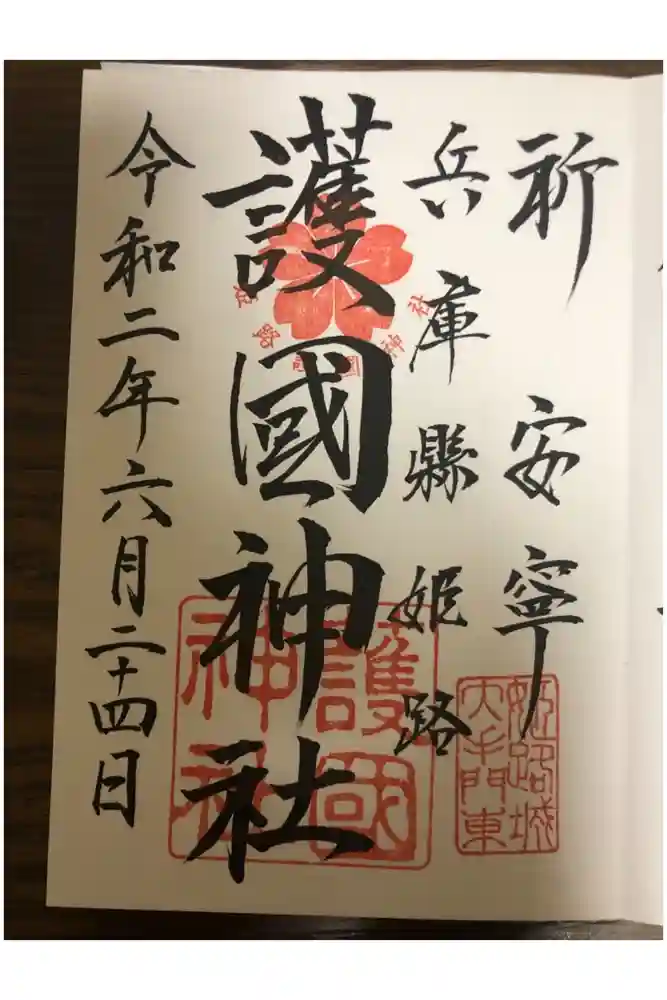 祈 安寧
兵庫縣姫路
護國神社
令和二年六月二十四日
護國
神社
姫路城
大手門東